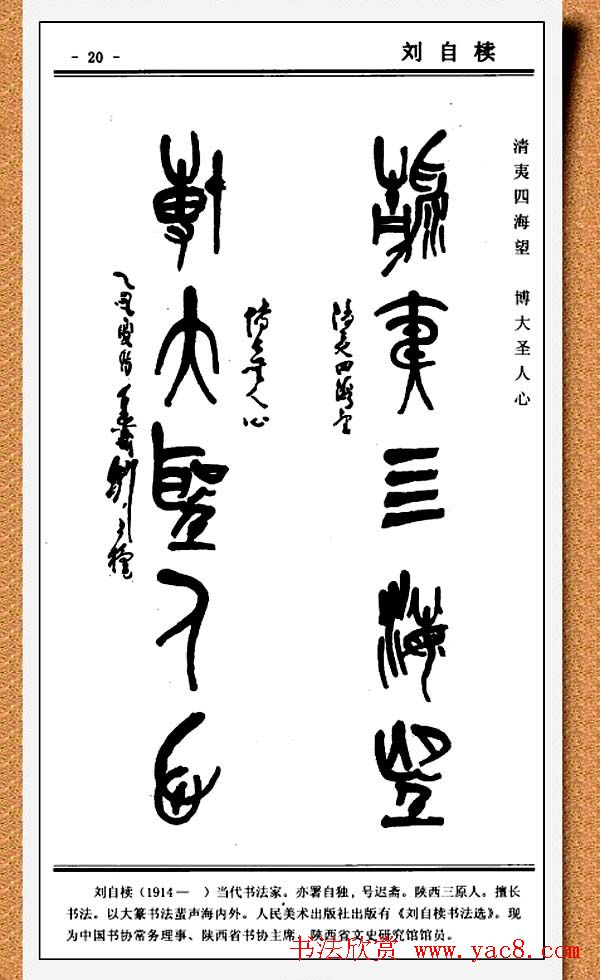 - 20 -
刘自椟
清夷四海望 博大圣人心
清夷四海望
博大圣人心
清夷四海望
博大聖人心
刘自椟（1914— ）当代书法家。亦署自独，号迟斋。陕西三原人。擅长
书法。以大篆书法蜚声海内外。人民美术出版社出版有《刘自椟书法选》。现
为中国书协常务理事、陕西省书协主席、陕西省文史研究馆馆员。
书法欣赏 www.yac8.com